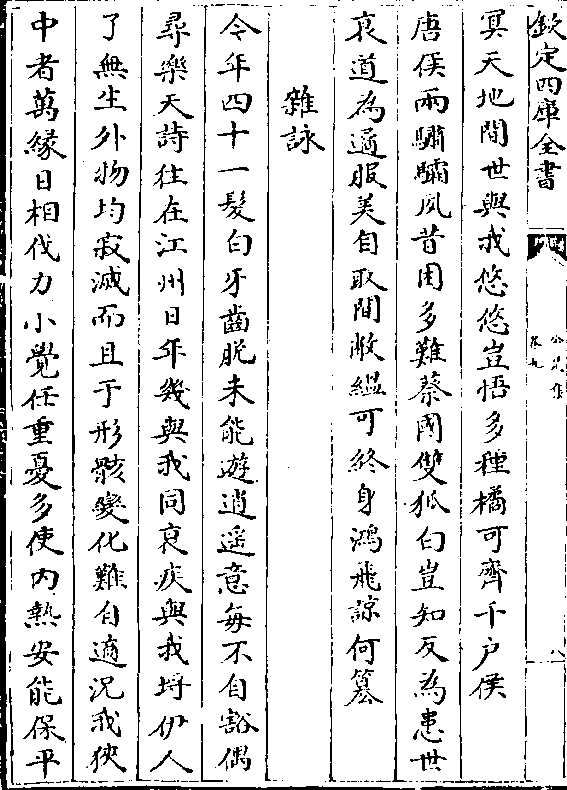 欽定四庫全書
公是集
卷九
八
冥天地間世與我悠悠豈悟多種橘可齊千户侯
唐侯兩驌驦夙昔困多難蔡國雙狐白豈知反為患世
衰道為適服美自取間敝縕可終身鴻飛諒何篡
雜詠
今年四十一髮白牙齒脱未能遊逍遥意每不自豁偶
尋樂天詩往在江州日年幾與我同衰疾與我埒伊人
了無生外物均寂滅而且于形骸變化難自適況我狹
中者萬緣日相伐力小覺任重憂多使内熱安能保平